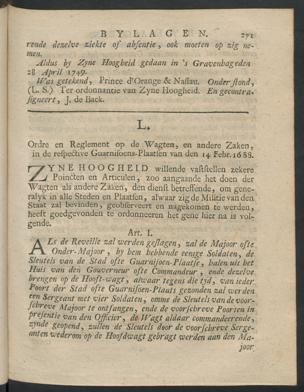 BYLAGEN. 271
rende dezelve ziekte of absentie, ook moeten op zig ne-
men.
Aldus by Zyne Hoogheid gedaan in 's Gravenhageden
28 April 1749.
Was getekend, Prince d'Orange & Nassau. Onder stond,
(L. S.) Ter ordonnantie van Zyne Hoogheid. En gecontra-
signeert, J. de Back.
L.
Ordre en Reglement op de Wagten, en andere Zaken,
in de respective Guarnisoens-Plaatsen van den 14 Febr. 1688.
ZYNE HOOGHEID willende vaststellen zekere
Poincten en Articulen, zoo aangaande het doen der
Wagten als andere Zaken, den dienst betreffende, om gene-
ralyk in alle Steden en Plaatsen, alwaar zig de Militie van den
Staat zal bevinden, geobserveert en nagekomen te werden,
heeft goedgevonden te ordonneeren het gene hier na is vol-
gende.
Art. I.
Als de Reveille zal werden geslagen, zal de Majoor ofte
Onder-Majoor, by hem hebbende eenige Soldaten, de
Sleutels van de Stad ofte Guarnisoen-Plaatse, halen uit het
Huis van den Gouverneur ofte Commandeur, ende dezelve
brengen op de Hooft-wagt, alwaar tegens die tyd, van ieder
Poort der Stad ofte Guarnisoen-Plaats gezonden zal werden
een Sergeant met vier Soldaten, omme de Sleutels van de voor-
schreve Majoor te ontfangen, ende de voorschreve Poorten in
presentie van den Officier, de Wagt aldaar commandeerende,
zynde geopend, zullen de Sleutels door de voorschreve Serge-
anten wederom op de Hoofdwagt gebragt werden aan den Ma-
joor